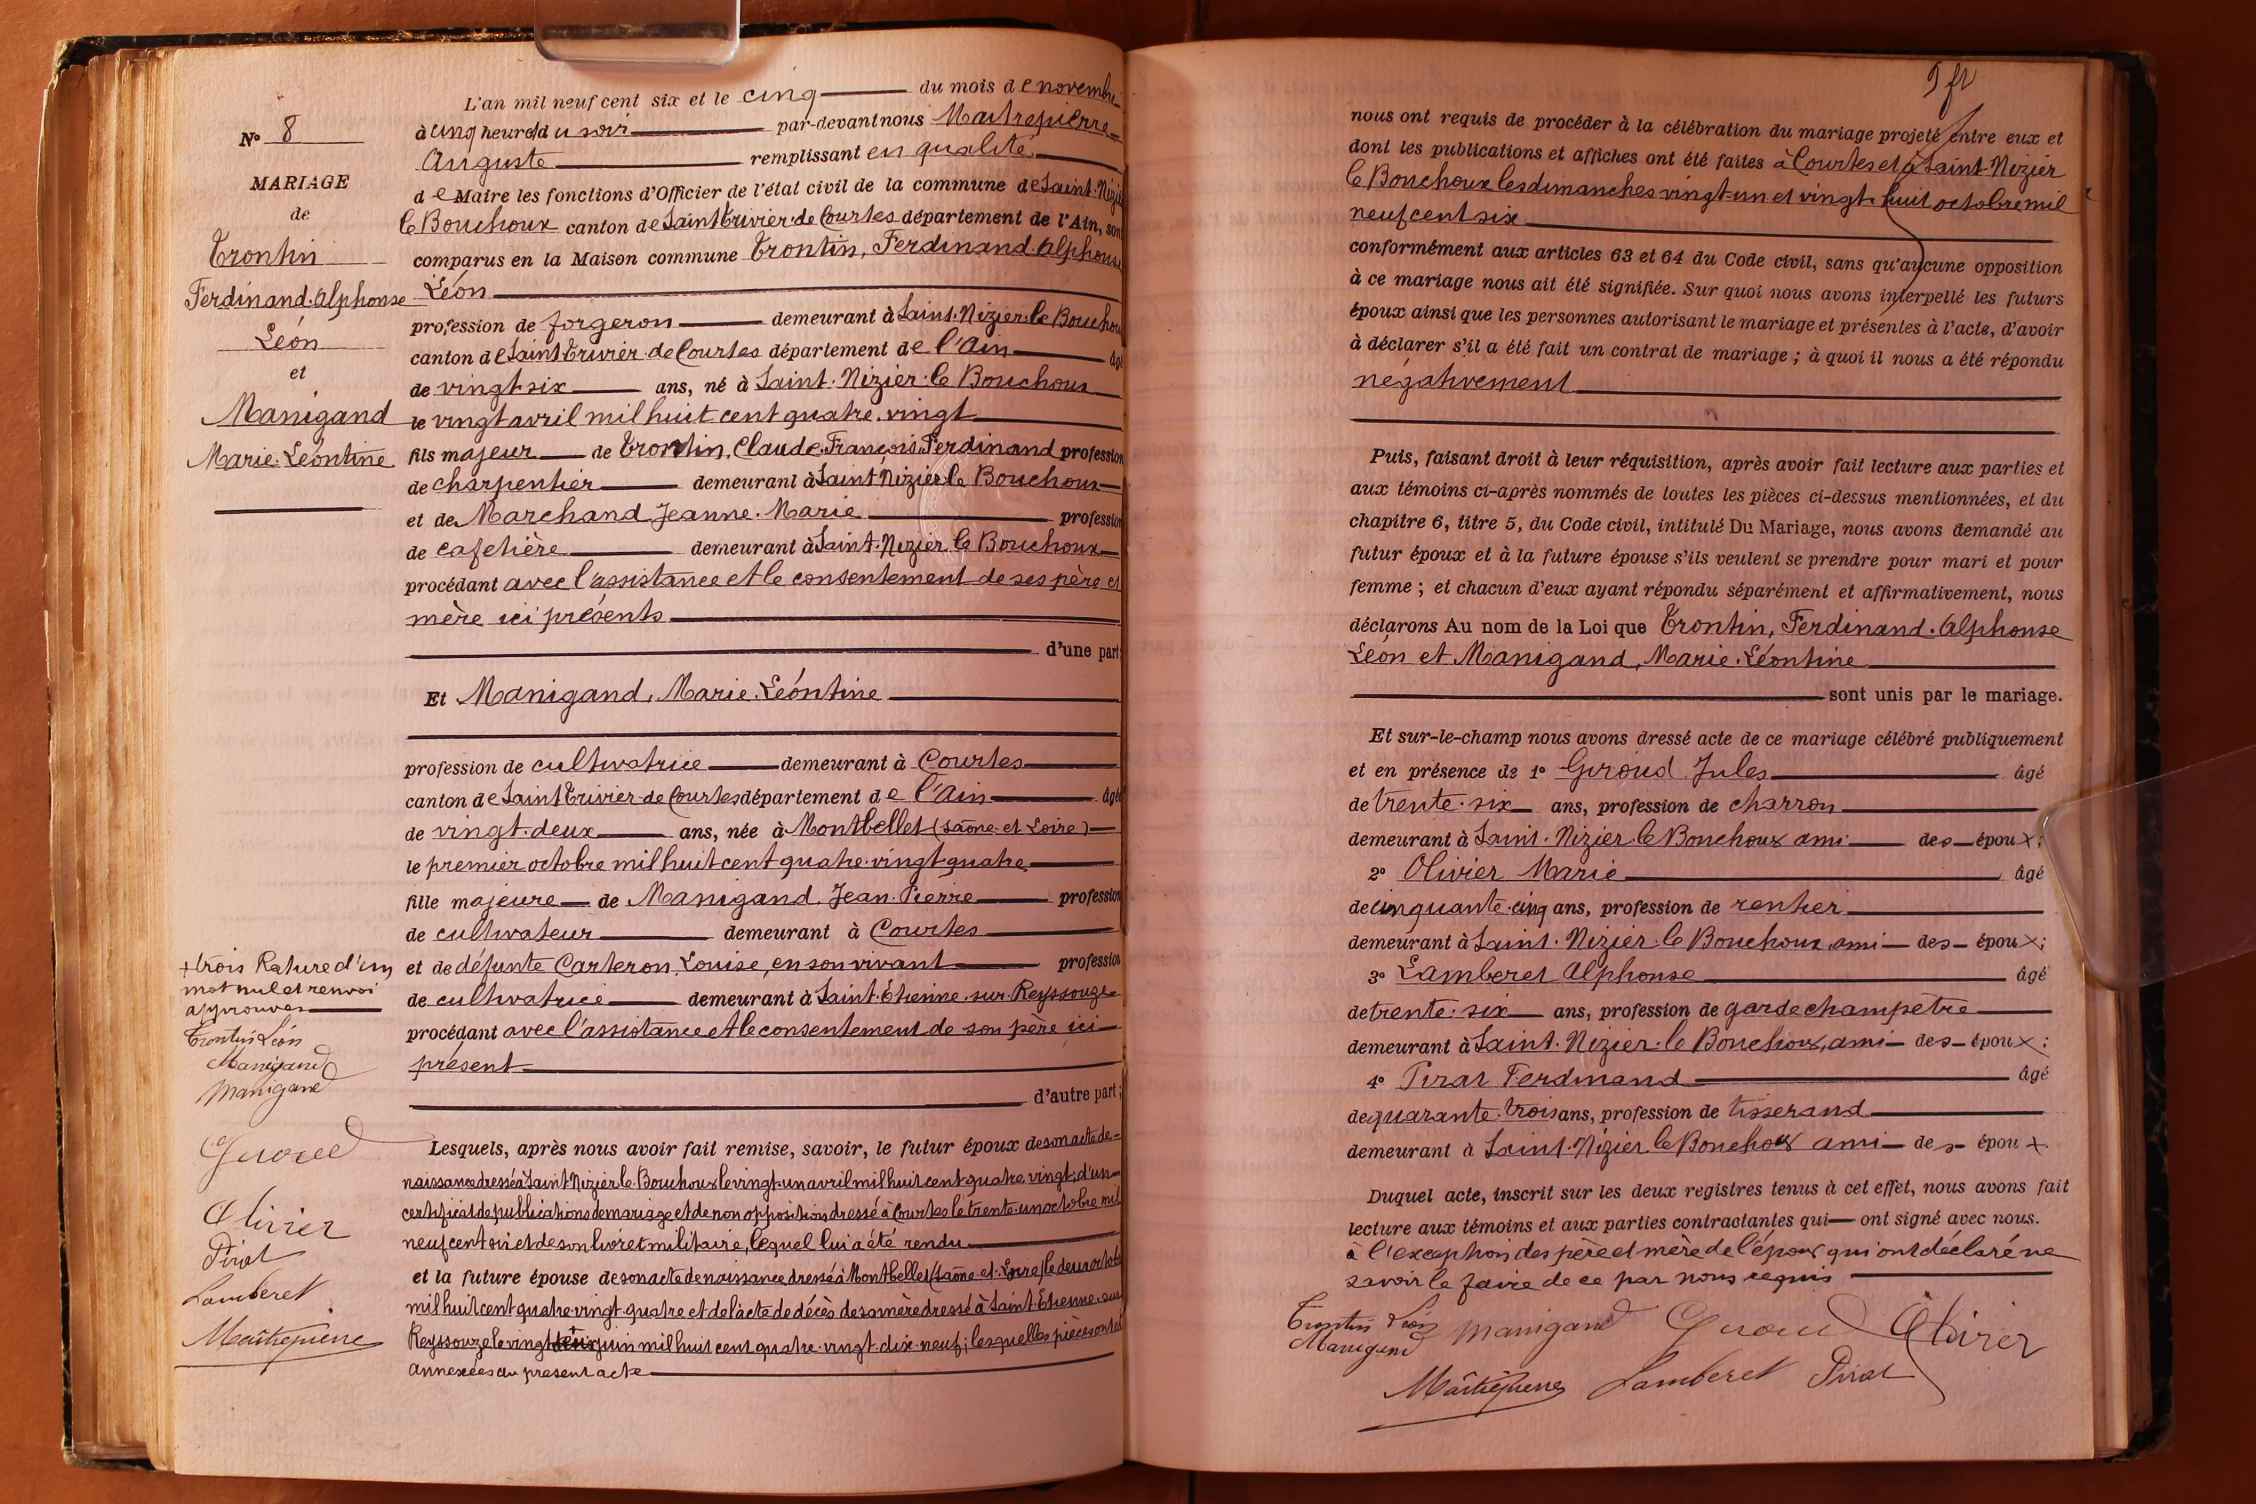 N° 8
MARIAGE
de
Trontin
Ferdinand-Alphonse
Léon
et
Manigand
Marie-Léontine
L'an mil neuf cent six et le cinq du mois de novembre
à cinq heures du soir par-devant nous Maîtrepierre
Auguste remplissant en qualité
de Maire les fonctions d'Officier de l'état civil de la commune de Saint-Nizier
le Bouchoux canton de Saint Trivier-de Courtes département de l'Ain, sont
comparus en la Maison commune Trontin, Ferdinand-Alphonse
Léon
profession de forgeron demeurant à Saint-Nizier-le Bouchoux
canton de Saint Trivier-de Courtes département de l'Ain âgé
de vingt-six ans, né à Saint-Nizier-le Bouchoux
le vingt avril mil huit cent quatre-vingt
fils majeur de Trontin, Claude-François-Ferdinand profession
de charpentier demeurant à Saint Nizier le Bouchoux
et de Marchand Jeanne-Marie profession
de cafetière demeurant à Saint-Nizier le Bouchoux
procédant avec l'assistance et le consentement de ses père et
mère ici présents
d'une part;
Et Manigand, Marie-Léontine
profession de cultivatrice demeurant à Courtes
canton de Saint Trivier-de Courtes département de l'Ain âgée
de vingt-deux ans, née à Montbellet (Saône-et-Loire)
le premier octobre mil huit cent quatre-vingt-quatre
fille majeure de Manigand, Jean-Pierre profession
de cultivateur demeurant à Courtes
et de défunte Carteron, Louise, en son vivant profession
de cultivatrice demeurant à Saint-Étienne-sur-Reyssouze
procédant avec l'assistance et le consentement de son père ici
présent
d'autre part;
+ trois Rature d'un
mot nul et renvoi
approuvés
Trontin Léon
Manigand
Manigand
Giroud
Olivier
Pirat
Lamberet
Maîtrepierre
Lesquels, après nous avoir fait remise, savoir, le futur époux de son acte de
naissance dressé à Saint Nizier le Bouchoux le vingt-un avril mil huit cent quatre-vingt, d'un
certificat de publications de mariage et de non opposition dressé à Courtes le trente-un octobre mil
neuf cent six et de son livret militaire, lequel lui a été rendu
et la future épouse de son acte de naissance dressé à Montbellet (Saône-et-Loire) le deux octobre
mil huit cent quatre-vingt-quatre et de l'acte de décès de sa mère dressé à Saint-Étienne-sur
Reyssouze le vingt juin mil huit cent quatre-vingt-dix-neuf; lesquelles pièces ont été
annexées au présent acte
9 fr
nous ont requis de procéder à la célébration du mariage projeté entre eux et
dont les publications et affiches ont été faites à Courtes et à Saint-Nizier
le Bouchoux les dimanches vingt-un et vingt-huit octobre mil
neuf cent six
conformément aux articles 63 et 64 du Code civil, sans qu'aucune opposition
à ce mariage nous ait été signifiée. Sur quoi nous avons interpellé les futurs
époux ainsi que les personnes autorisant le mariage et présentes à l'acte, d'avoir
à déclarer s'il a été fait un contrat de mariage ; à quoi il nous a été répondu
négativement
Puis, faisant droit à leur réquisition, après avoir fait lecture aux parties et
aux témoins ci-après nommés de toutes les pièces ci-dessus mentionnées, et du
chapitre 6, titre 5, du Code civil, intitulé Du Mariage, nous avons demandé au
futur époux et à la future épouse s'ils veulent se prendre pour mari et pour
femme ; et chacun d'eux ayant répondu séparément et affirmativement, nous
déclarons Au nom de la Loi que Trontin, Ferdinand-Alphonse
Léon et Manigand, Marie-Léontine
sont unis par le mariage.
Et sur-le-champ nous avons dressé acte de ce mariage célébré publiquement
et en présence de 1° Giroud Jules âgé
de trente-six ans, profession de charron
demeurant à Saint-Nizier-le Bouchoux ami des époux;
2° Olivier Marie âgé
de cinquante-cinq ans, profession de rentier
demeurant à Saint-Nizier-le Bouchoux, ami des époux;
3° Lamberet Alphonse âgé
de trente-six ans, profession de garde champêtre
demeurant à Saint-Nizier-le Bouchoux, ami des époux;
4° Pirat Ferdinand âgé
de quarante-trois ans, profession de tisserand
demeurant à Saint-Nizier le Bouchoux ami des époux
Duquel acte, inscrit sur les deux registres tenus à cet effet, nous avons fait
lecture aux témoins et aux parties contractantes qui ont signé avec nous.
à l'exception des père et mère de l'époux qui ont déclaré ne
savoir le faire de ce par nous requis
Trontin Léon Manigand Giroud Olivier
Manigand
Maîtrepierre Lamberet Pirat